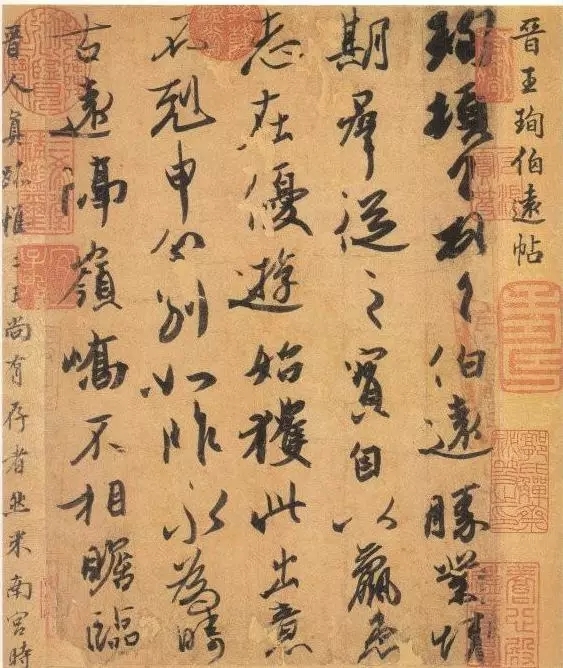 晋王珣伯遠帖
珣頓首頓首伯遠勝業情
期羣從之寶自以羸患
志在優遊始獲此出意
不剋申分别如昨永為疇
古遠隔嶺嶠不相瞻臨
晋人真跡惟二王尚有存者然米南宮時